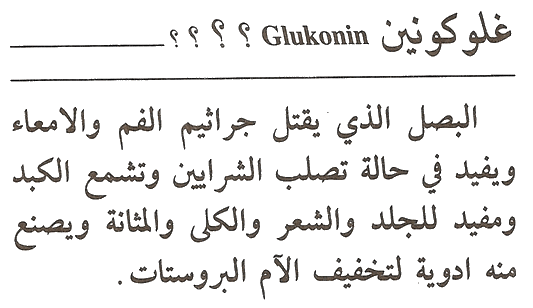 غلوكونين Glukonin ؟ ؟ ؟ ؟
البصل الذي يقتل جراثيم الفم والامعاء
ويفيد في حالة تصلب الشرايين وتشمع الكبد
ومفيد للجلد والشعر والكلى والمثانة ويصنع
منه ادوية لتخفيف الآم البروستات .